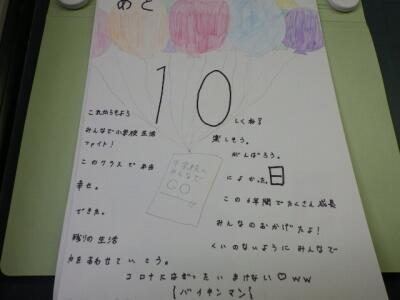 あと
10
しくね!
これからもよろ
みんなで小学校生活 楽しもう。
ファイト! がんばろう。
このクラスで本当 によかった。 日
中学校へ
みんなで
GO
幸せ。 この6年間でたくさん成長
できた。 みんなのおかげだよ!
残りの生活 くいのないようにみんなで
力をあわせていこう。
コロナにはぜったいまけない♡ww
{バイキンマン}